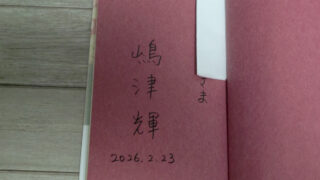 さま
嶋津輝
2026.2.23